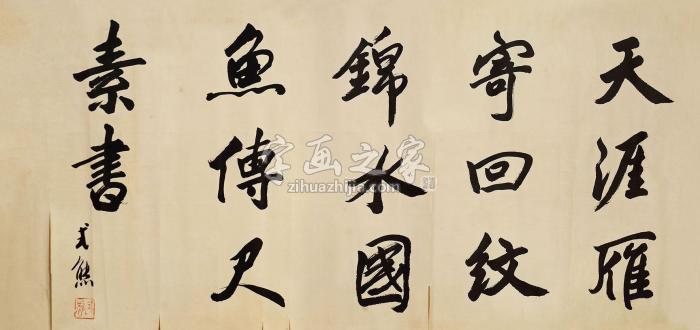 天涯雁
寄回紋
錦水國
魚傳尺
素書
式熊
字画之家
zihuazhijia.com